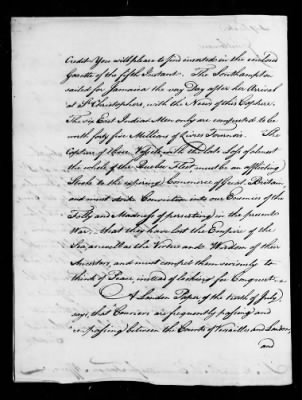 Credit. You will please to find inserted in the enclosed
Gazette of the fifth Instant. The Southampton
sailed for Jamaica the very Day after her Arrival
at St Christophers, with the News of this Capture.
The six East India Men only are computed to be
worth forty five Millions of Livres Tournois. The
Capture of these Vessels with the late Loss of almost
the whole of the Quebec Fleet, must be an afflicting
Stroke to the expiring Commerce of Great Britain,
and must strike Conviction into our Enemies of the
Folly and Madness of persisting in the present
War, that they have lost the Empire of the
Sea, as well as the Virtue and Wisdom of their
Ancestors, and must compel them seriously to
think of Peace, instead of looking for Conquest.
A London Paper of the tenth of July
says, that Couriers are frequently passing and
re-passing between the Courts of Versailles and London,
and